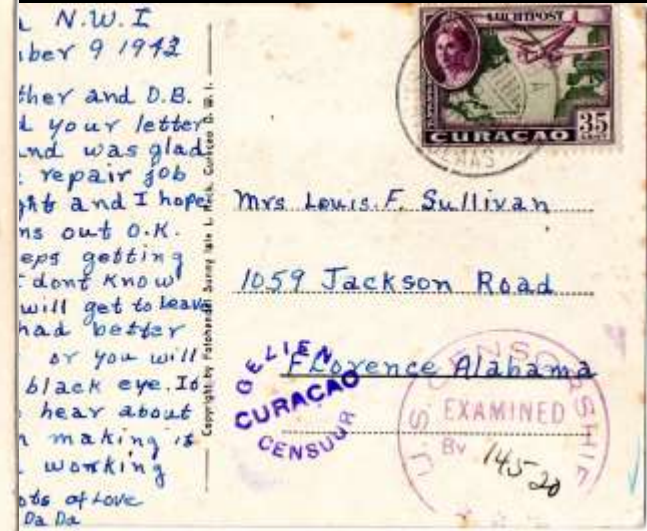 N.W.I
ber 9 1942
ther and D.B.
your letter
and was glad
repair job
ght and I hope
ns out O.K.
eps getting
dont know
will get to leave
had better
or you will
black eye. Is
hear about
making it
working
ots of Love
Da Da
Copyright by Fotohandel Sunny Isle L. Reck, Curacao D.W.I.
LUCHTPOST
CURACAO
35
CENT
Mrs Louis. F. Sullivan
1059 Jackson Road
Florence Alabama
GELIEN
CURACAO
CENSUUR
U.S. CENSORSHIP
EXAMINED
By 14520